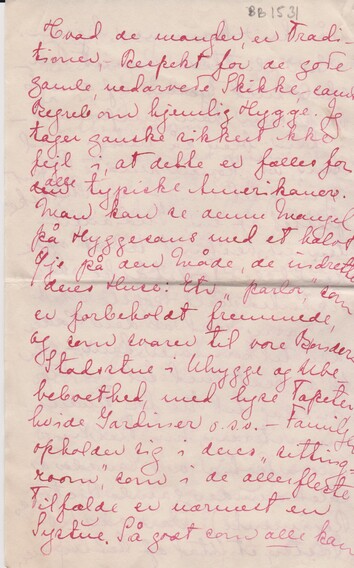 BB 1531
Hvad de mangler, er Tradi-
tioner, Respekt for de gode
gamle, nedarvede Skikke, samt
Begreb om hjemlig Hygge. Jeg
tager ganske sikkert ikke
fejl i, at dette er fælles for
alle typiske Amerikaner.
Man kan se denne Mangel
på Hyggesans med et halvt
Øje på den Måde, de indretter
deres Huse: Et „parlor", som
er forbeholdt fremmede,
og som svarer til vore Bønders
Stadsstue i Uhygge og Ube-
beboethed, med lyse Tapeter
hvide Gardiner o.s.v. – Familien
opholder sig i deres „sitting
room", som i de allerfleste
Tilfælde er nærmest en
Systue. Så godt som alle kan